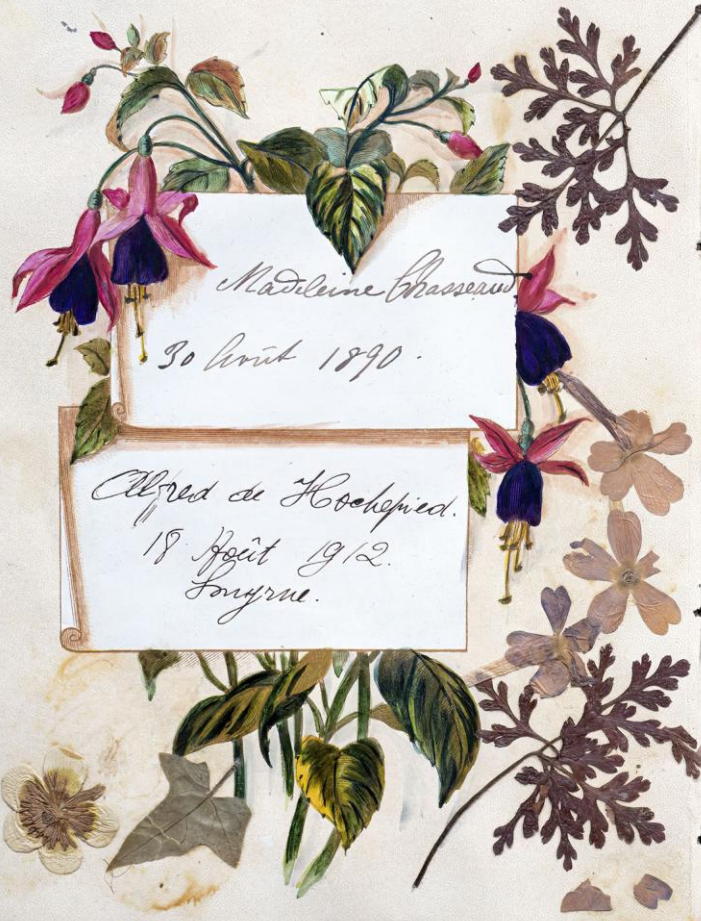 Madeleine Chasseaud
30 Août 1890.
Alfred de Hochepied.
18 Août 1912.
Smyrne.